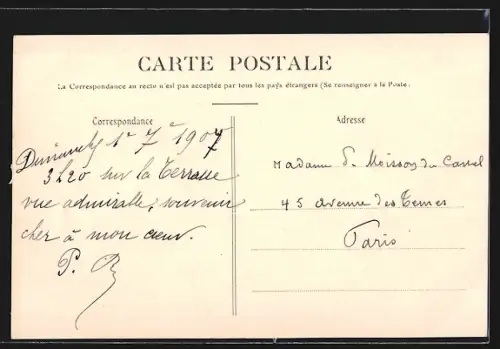 CARTE POSTALE
La Correspondance au recto n'est pas acceptée par tous les pays étrangers (Se renseigner à la Poste.
Correspondance
Dimanche 1r 7 1907
3h20 sur la Terrasse
vue admirable, souvenir
cher à mon cœur.
P. R
Adresse
Madame P. Moisson du Cassel
45 avenue des Ternes
Paris